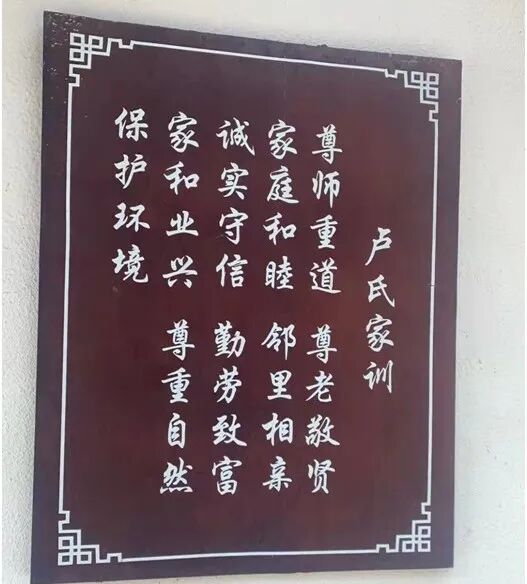 卢氏家训
尊师重道 尊老敬贤
家庭和睦 邻里相亲
诚实守信 勤劳致富
家和业兴 尊重自然
保护环境